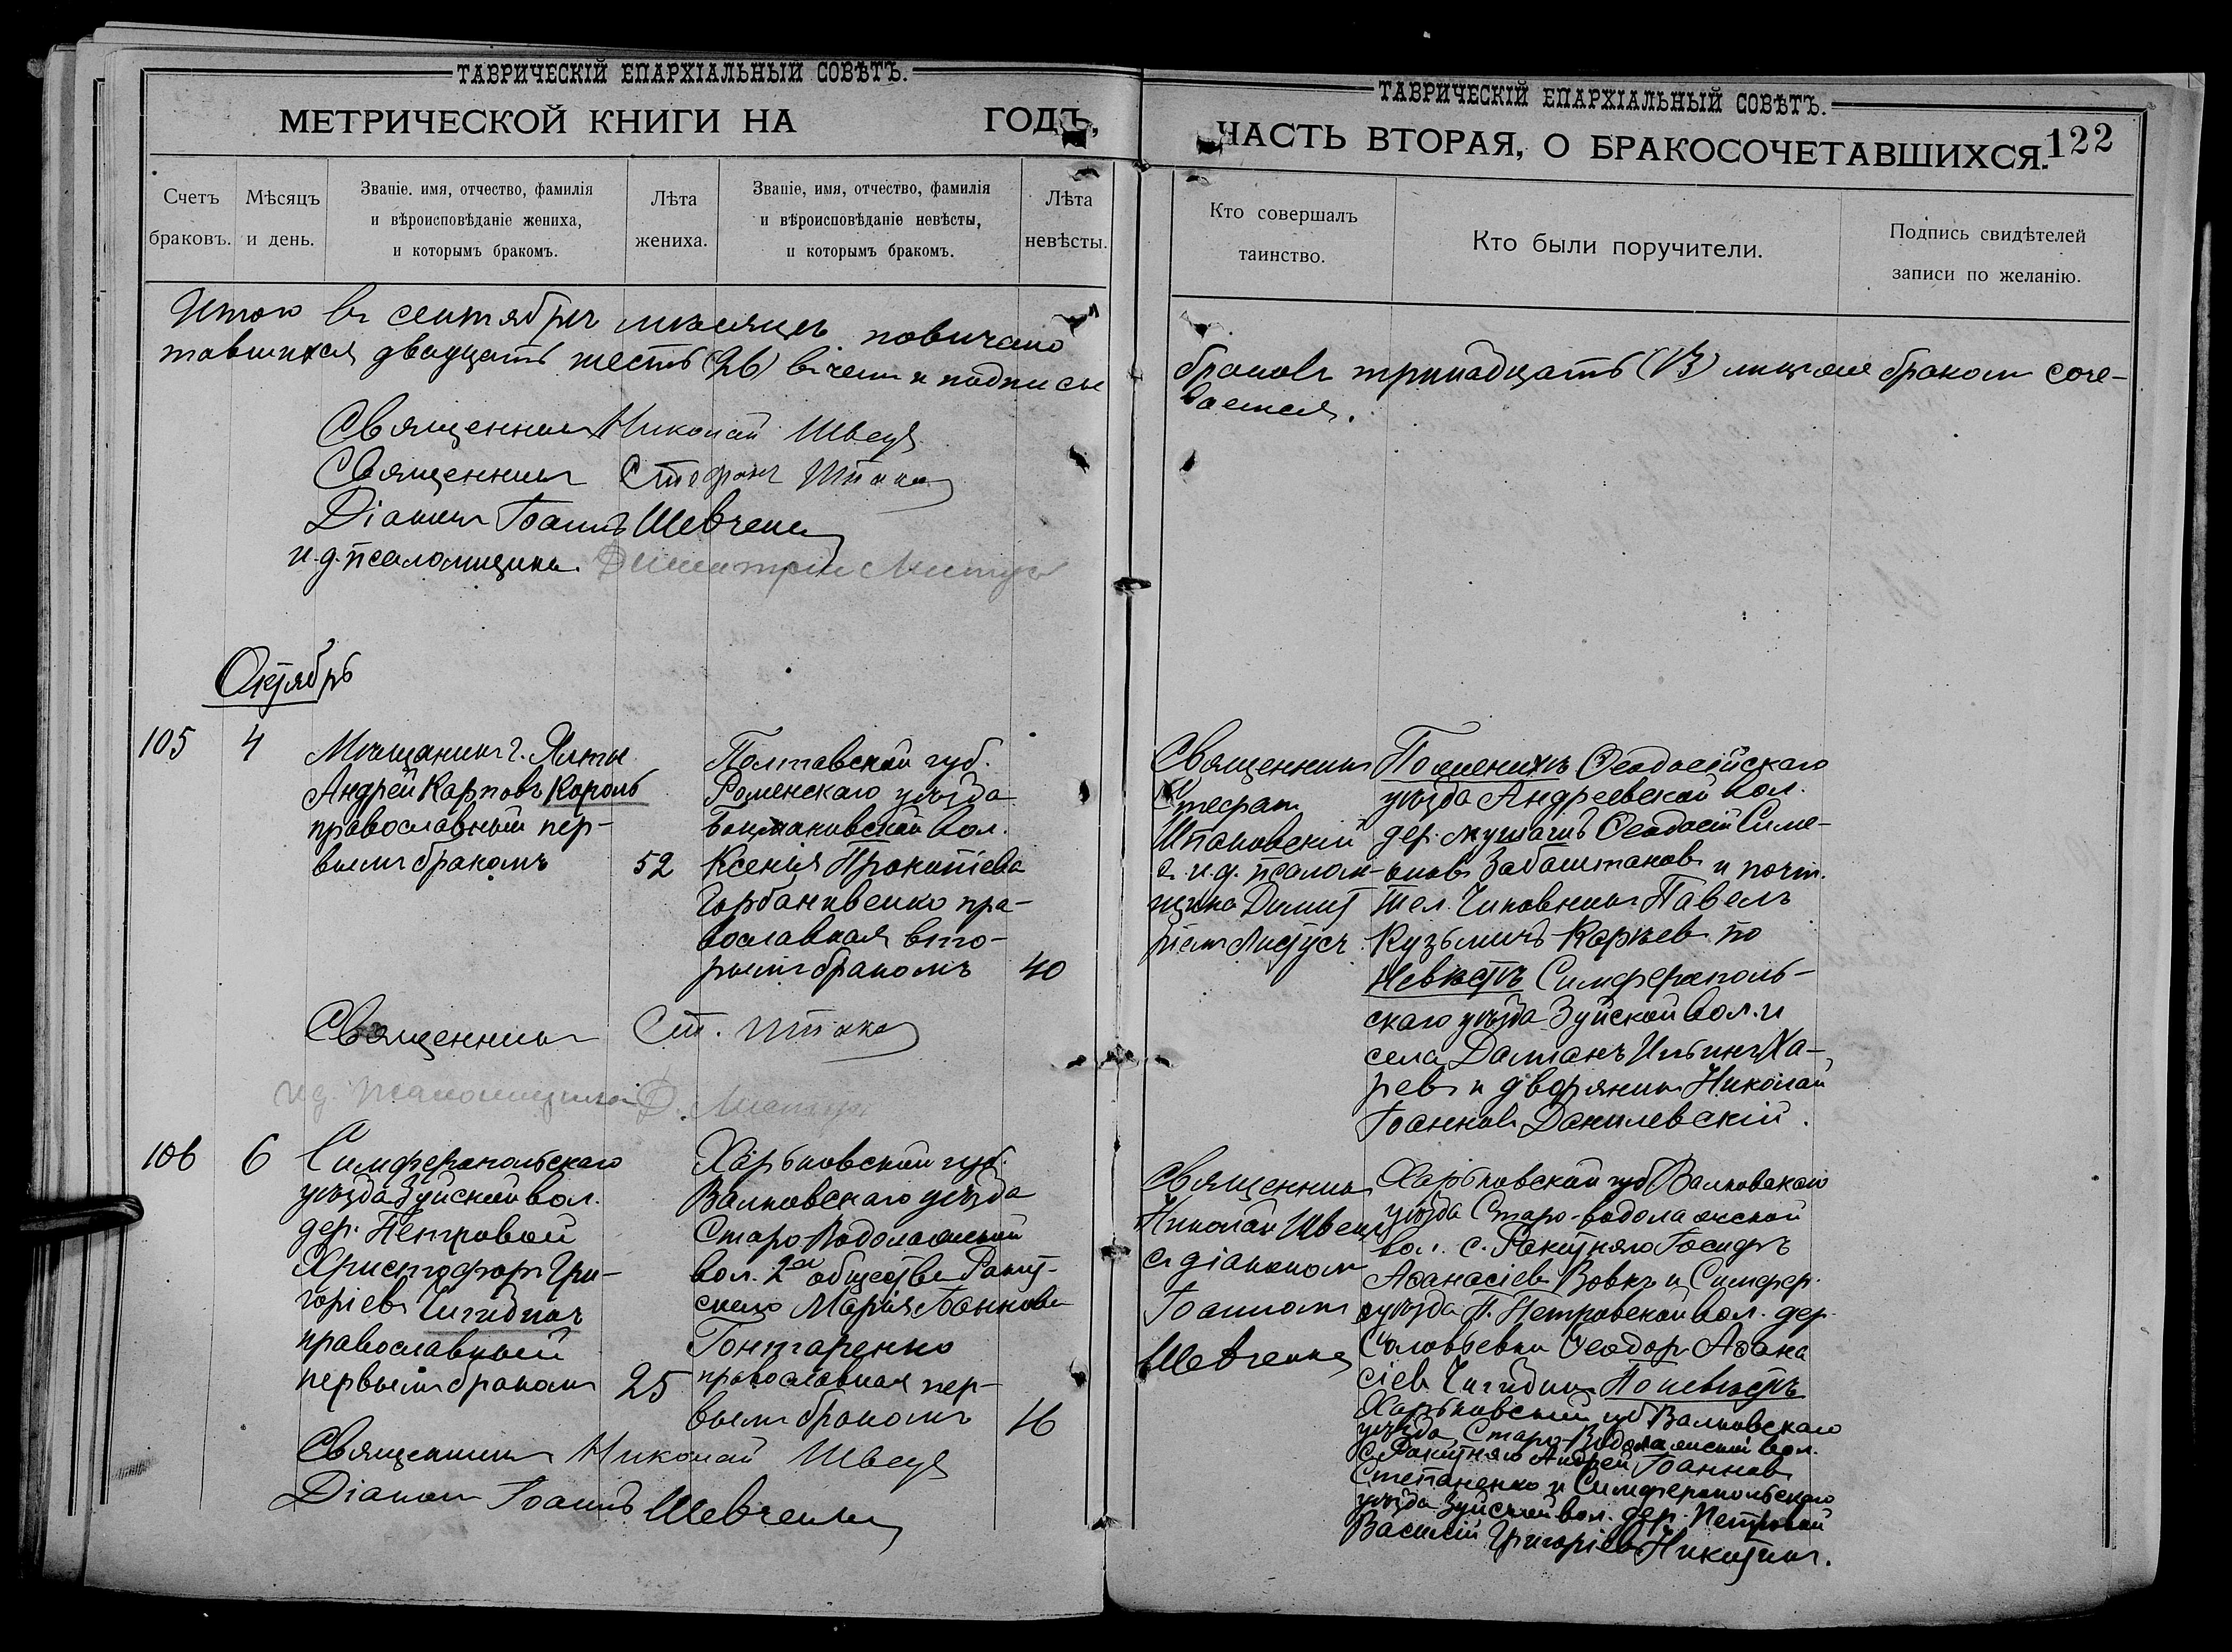 ТАВРИЧЕСКІЙ ЕПАРХІАЛЬНЫЙ СОВѢТЪ.
МЕТРИЧЕСКОЙ КНИГИ НА ГОДЪ,
Счетъ браковъ.
Мѣсяцъ и день.
Званіе, имя, отчество, фамилія
и вѣроисповѣданіе жениха,
и которымъ бракомъ.
Лѣта жениха.
Званіе, имя, отчество, фамилія
и вѣроисповѣданіе невѣсты,
и которымъ бракомъ.
Лѣта невѣсты.
Итого въ сентябрѣ мѣсяцѣ повѣнчано
тавшихся двадцать шесть (26) въ чемъ и подписы
Священникъ Николай Швецъ
Священникъ Стефанъ
Діаконъ Іоаннъ Шевченко
и.д. псаломщика Димитрій
Октябрь
105 4
Мѣщанинъ г. Ялты
Андрей Карповъ Король
православный пер-
вымъ бракомъ 52
Полтавской губ.
Роменскаго уѣзда
вол.
Ксенія Прокопіева
Горбанивенко пра-
вославная вто-
рымъ бракомъ 40
Священникъ Ст.
и.д. псаломщика Д.
106 6
Симферопольскаго
уѣзда Зуйской вол.
дер. Петровой
Христофоръ Гри-
горіевъ Чигидинъ
православный
первымъ бракомъ 25
Харьковской губ.
Валковскаго уѣзда
Старо Водолажской
вол. 2го общества Ракит-
скаго Марія Іоаннова
Гонтаренко
православная пер-
вымъ бракомъ 16
Священникъ Николай Швецъ
Діаконъ Іоаннъ Шевченко
ТАВРИЧЕСКІЙ ЕПАРХІАЛЬНЫЙ СОВѢТЪ.
ЧАСТЬ ВТОРАЯ, О БРАКОСОЧЕТАВШИХСЯ.
122
Кто совершалъ
таинство.
Кто были поручители.
Подпись свидѣтелей
записи по желанію.
браковъ тринадцать (13) лицъ же бракомъ соче-
ваемся.
Священникъ
Стефанъ
Шпаковскій
с и.д. псалом-
щика Димит
ріемъ
По женихѣ Ѳеодосійскаго
уѣзда Андреевской вол.
дер. Ѳеодосій Симе-
оновъ Забаштановъ и почт.
тел. Чиновникъ Павелъ
Кузьмичъ Корнѣевъ по
Невѣстѣ Симферополь-
скаго уѣзда Зуйской вол. и
села Даміанъ Ильинъ Ха-
ревъ и дворянинъ Николай
Іоанновъ Данилевскій.
Священникъ
Николай Швецъ
съ діакономъ
Іоанномъ
Шевченко
Харьковской губ Валковскаго
уѣзда Старо-водолажской
вол. с. Ракитняго Іосифъ
Аѳанасіевъ Вовкъ и Симфер.
уѣзда Н. Петровской вол. дер.
Соловьевки Ѳеодоръ Аѳана
сіевъ Чигидинъ По невѣстѣ
Харьковской губ Валковскаго
уѣзда Старо-Водолажской вол.
с. Ракитняго Андрей Іоанновъ
Степаненко и Симферопольскаго
уѣзда Зуйской вол. дер. Петровой
Василій Григоріевъ Никитинъ.